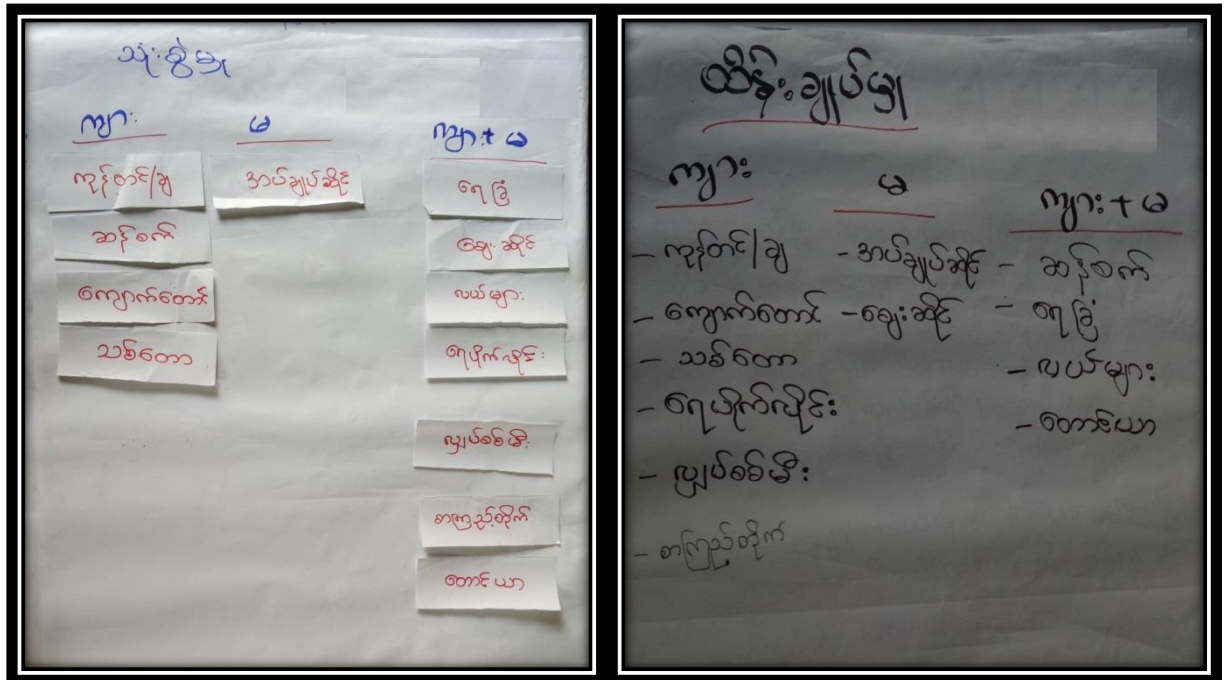 သုံးစွဲမှု
ကျား
မ
ကျား+မ
ကုန်တင်/ချ
ဆန်စက်
ကျောက်တောင်
သစ်တော
အပ်ချုပ်ဆိုင်
ရေခြံ
ဈေးဆိုင်
လယ်များ
ရေပိုက်လိုင်း
လျှပ်စစ်မီး
စာကြည့်တိုက်
တောင်ယာ
ထိန်းချုပ်မှု
ကျား
မ
ကျား+မ
- ကုန်တင်/ချ
- ကျောက်တောင်
- သစ်တော
- ရေပိုက်လိုင်း
- လျှပ်စစ်မီး
- စာကြည့်တိုက်
- အပ်ချုပ်ဆိုင်
- ဈေးဆိုင်
- ဆန်စက်
- ရေခြံ
- လယ်များ
- တောင်ယာ